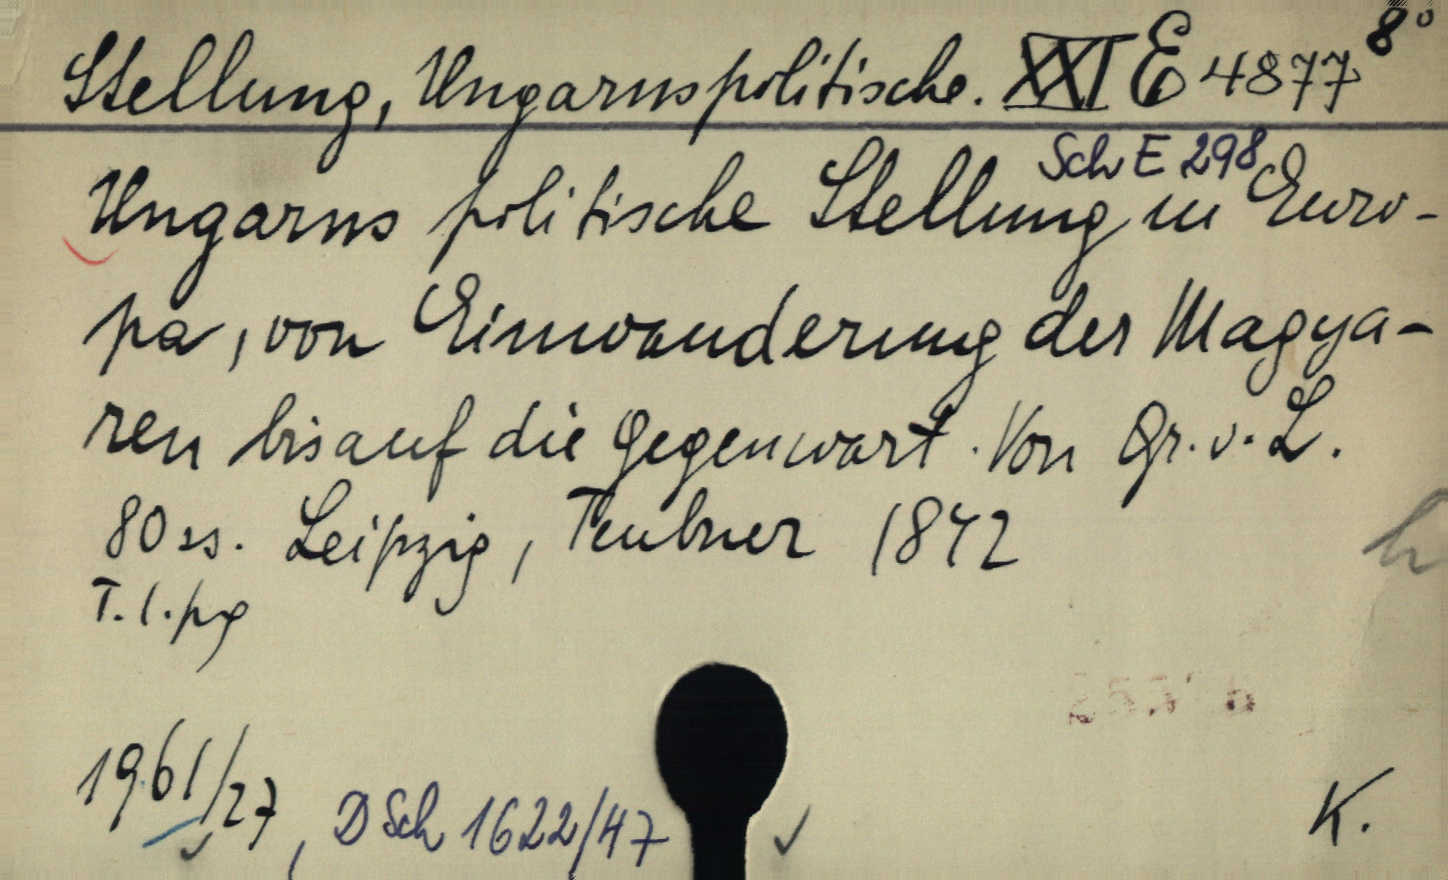 Stellung, Ungarns politische. XXI E 4877 8°
Sch E 298
Ungarns politische Stellung in Euro-
pa, von Einwanderung der Magya-
ren bis auf die Gegenwart. Von Gr. v. L.
80 ss. Leipzig, Teubner 1842
T. l. pg
1961/27, D Sch 1622/47
K.